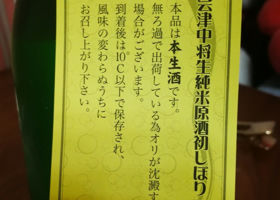 会津中将生純米原酒初しぼり
本品は本生酒です。
無ろ過で出荷している為オリが沈澱す
場合がございます。
到着後は10℃以下で保存され、
風味の変わらぬうちに
お召し上がり下さい。